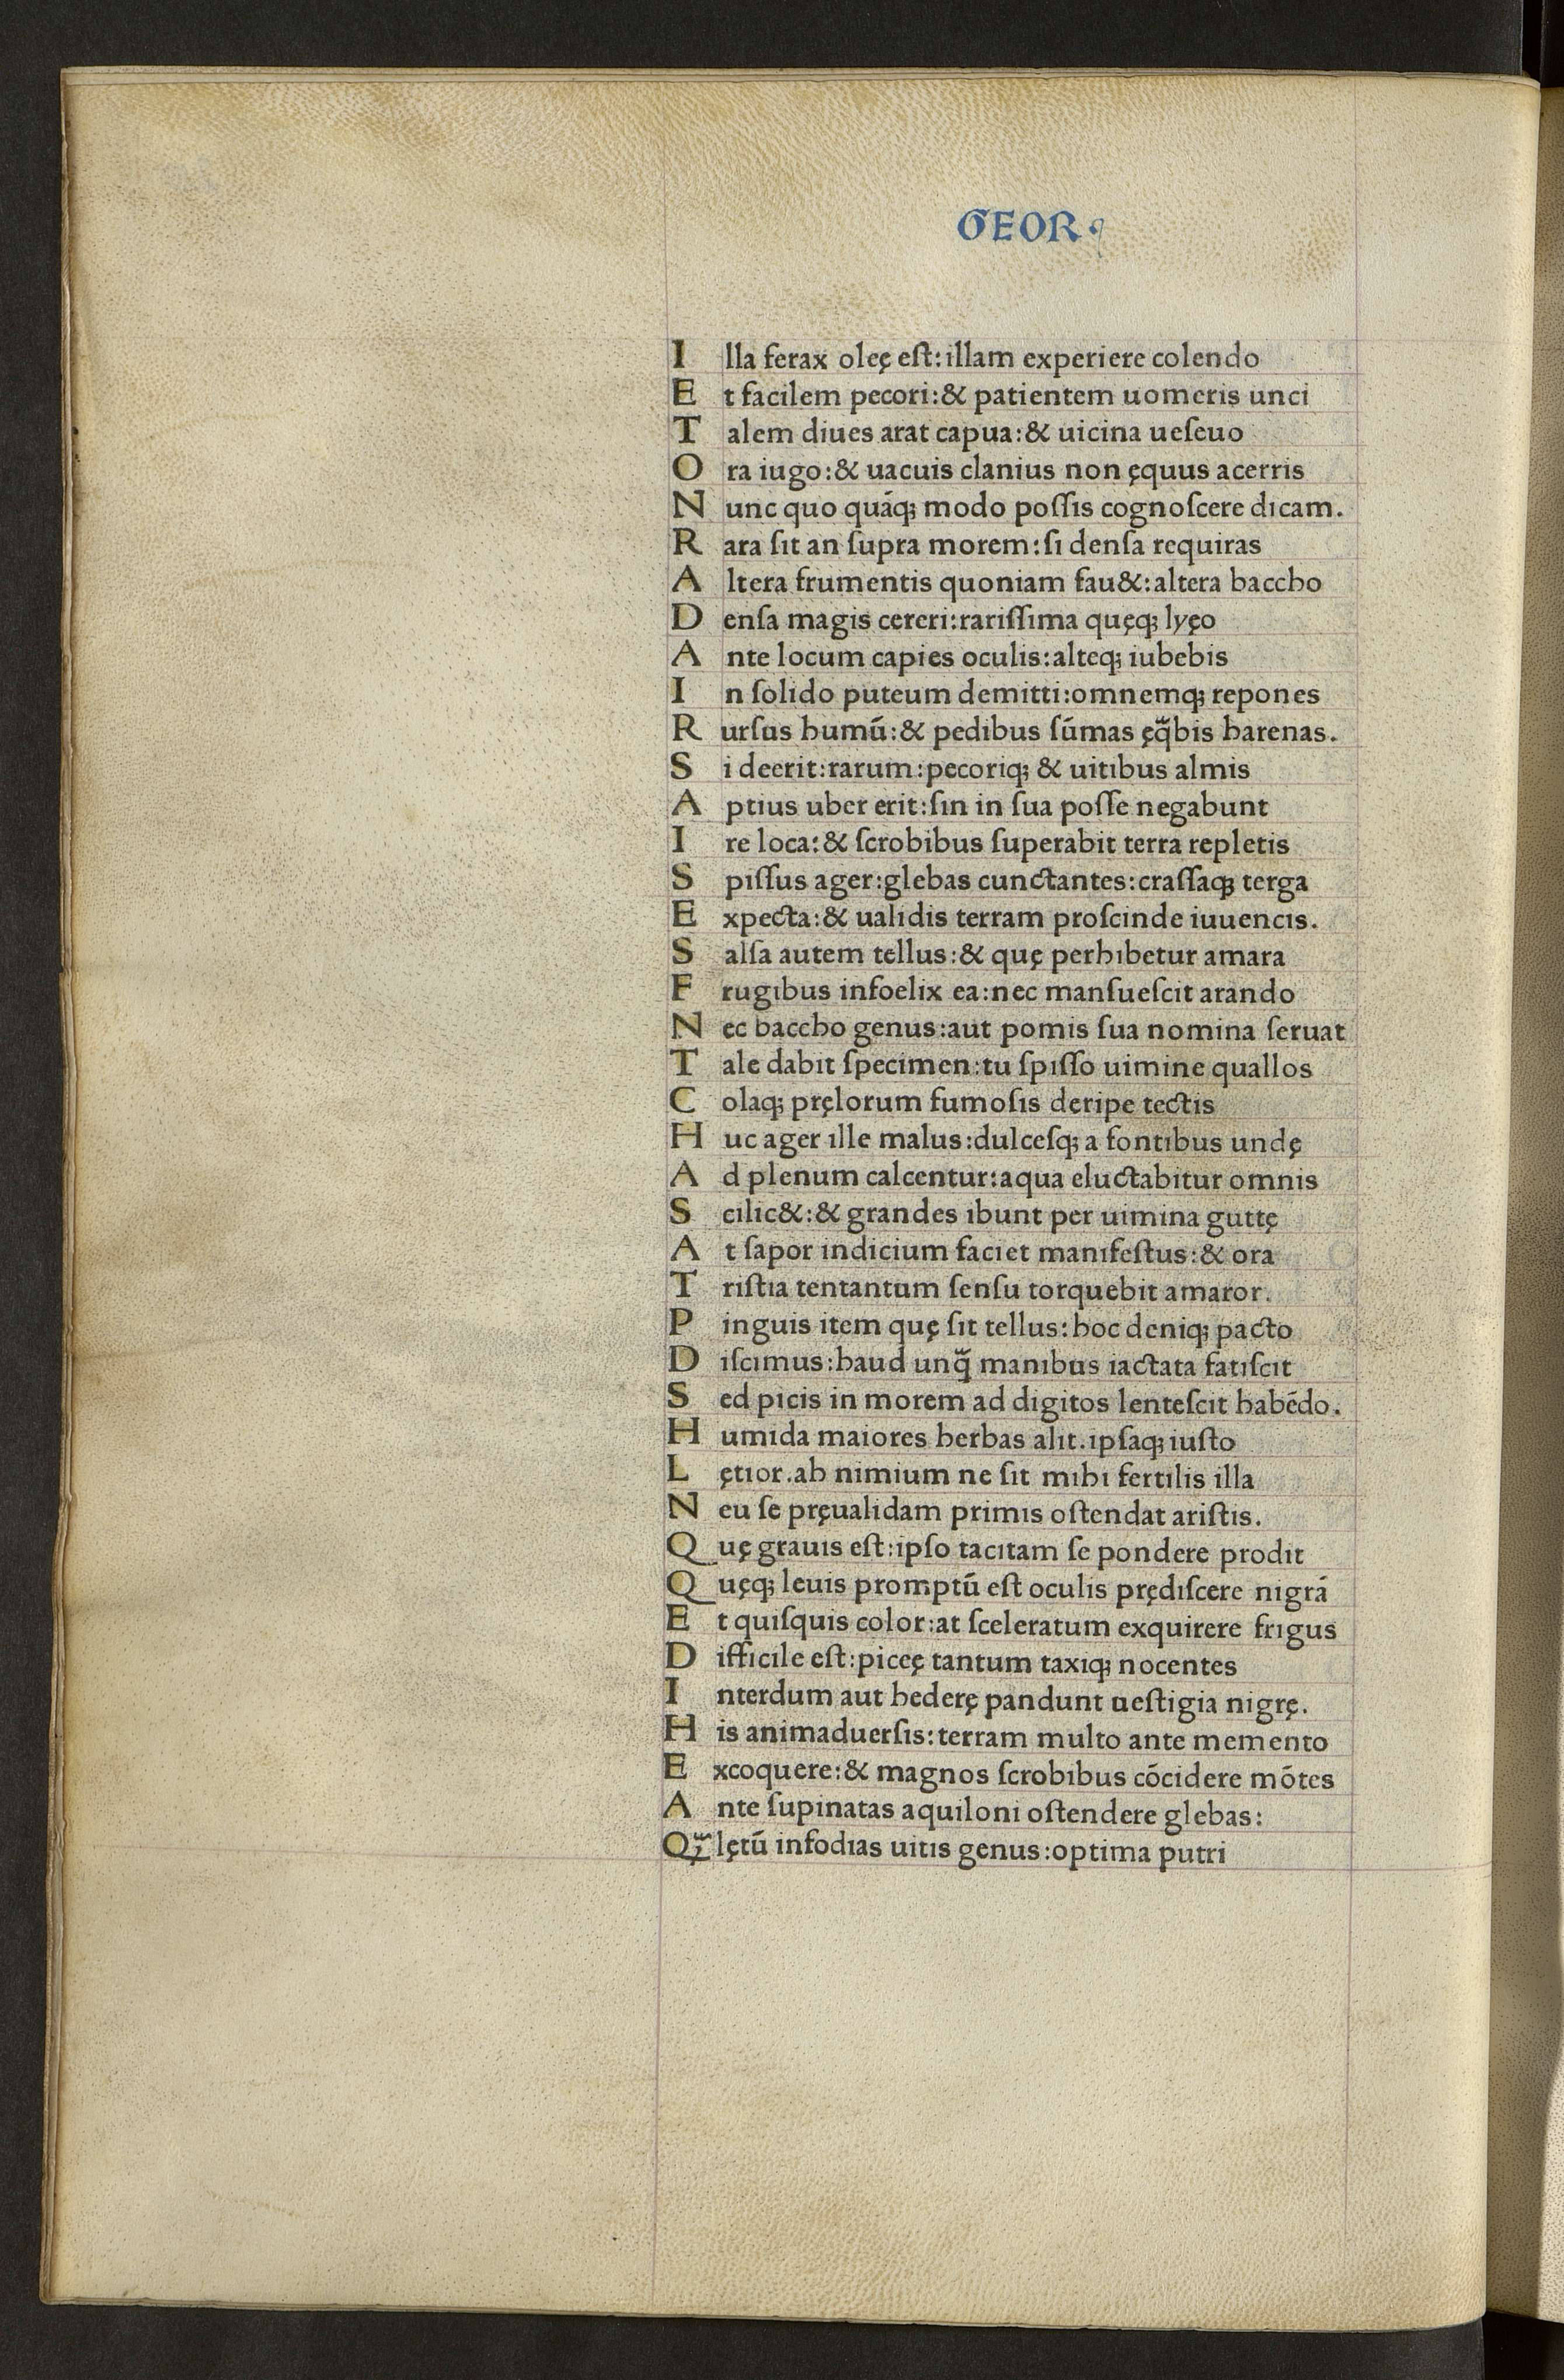 GEOR.
Illa ferax oleę eſt: illam experiere colendo
Et facilem pecori: & patientem uomeris unci
Talem diues arat capua: & uicina ueſeuo
Ora iugo: & uacuis clanius non ęquus acerris
Nunc quo quāq; modo poſſis cognoſcere dicam.
Rara ſit an ſupra morem: ſi denſa requiras
Altera frumentis quoniam fau&: altera baccho
Denſa magis cereri: rariſſima quęq; lyęo
Ante locum capies oculis: alteq; iubebis
In ſolido puteum demitti: omnemq; repones
Rurſus humū: & pedibus ſūmas ęq̃bis harenas.
Si deerit: rarum: pecoriq; & uitibus almis
Aptius uber erit: ſin in ſua poſſe negabunt
Ire loca: & ſcrobibus ſuperabit terra repletis
Spiſſus ager: glebas cunctantes: craſſaq; terga
Expecta: & ualidis terram proſcinde iuuencis.
Salſa autem tellus: & quę perhibetur amara
Frugibus infoelix ea: nec manſueſcit arando
Nec baccho genus: aut pomis ſua nomina ſeruat
Tale dabit ſpecimen: tu ſpiſſo uimine quallos
Colaq; pręlorum fumoſis deripe tectis
Huc ager ille malus: dulceſq; a fontibus undę
Ad plenum calcentur: aqua eluctabitur omnis
Scilic&: & grandes ibunt per uimina guttę
At ſapor indicium faciet manifeſtus: & ora
Triſtia tentantum ſenſu torquebit amaror.
Pinguis item quę ſit tellus: hoc deniq; pacto
Diſcimus: haud unq̃ manibus iactata fatiſcit
Sed picis in morem ad digitos lenteſcit habēdo.
Humida maiores herbas alit. ipſaq; iuſto
Lętior. ah nimium ne ſit mihi fertilis illa
Neu ſe pręualidam primis oſtendat ariſtis.
Quę grauis eſt: ipſo tacitam ſe pondere prodit
Quęq; leuis promptū eſt oculis prędiſcere nigrā
Et quiſquis color: at ſceleratum exquirere frigus
Difficile eſt: piceę tantum taxiq; nocentes
Interdum aut hederę pandunt ueſtigia nigrę.
His animaduerſis: terram multo ante memento
Excoquere: & magnos ſcrobibus cōcidere mōtes
Ante ſupinatas aquiloni oſtendere glebas:
Q̃ lętū infodias uitis genus: optima putri